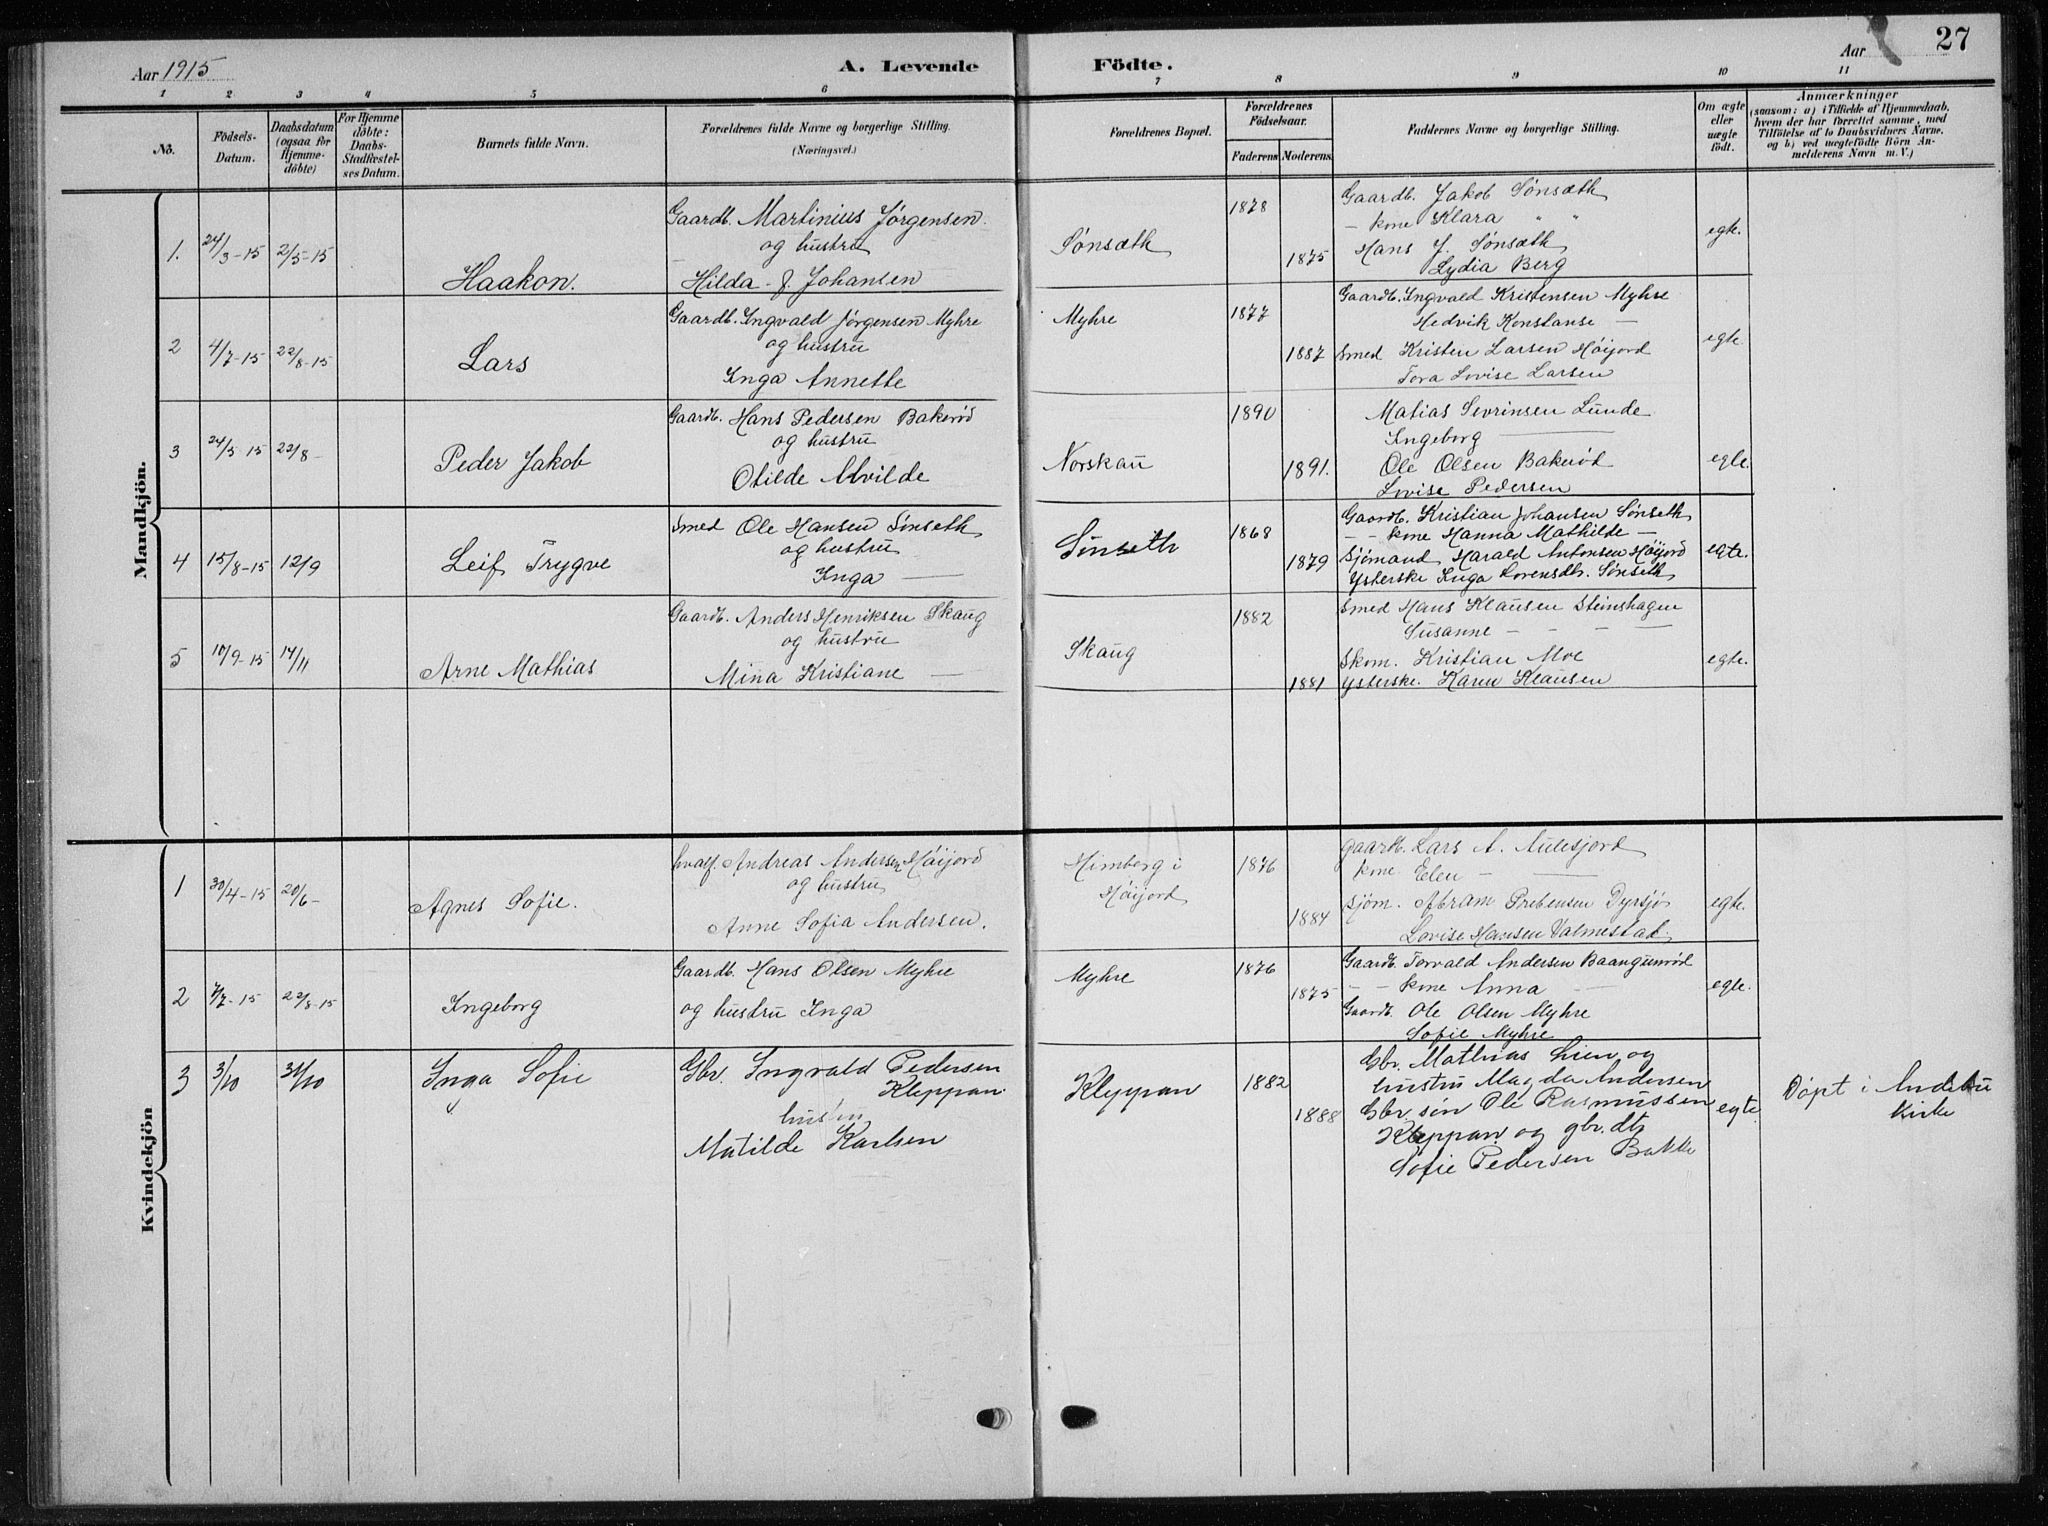 Aar 1915
A. Levende
Födte.
Aar
27
1 2 3 4 5 6 7 8 9 10 11
No.
Födsels-
Datum.
Daabsdatum
(ogsaa for
Hjemme-
döbte)
For Hjemme
döbte:
Daabs-
Stadfæstel-
ses Datum.
Barnets fulde Navn.
Forældrenes fulde Navne og borgerlige Stilling.
(Næringsvei.)
Forældrenes Bopæl.
Forældrenes
Födselsaar.
Faderens Moderens.
Faddernes Navne og borgerlige Stilling.
Om ægte
eller
uægte
födt.
Anmærkninger
(saasom: a) i Tilfælde af Hjemmedaab.
hvem der har forrettet samme, med
Tilföielse af to Daabsvidners Navne.
og b) ved uægtefödte Börn An-
melderens Navn m. V.)
Mandkjön.
1. 24/3-15 2/5-15 Haakon.
Gaardb. Martinius Jørgensen.
og hustru
Hilda J. Johansen
Sønsæth
1878
1875
Gaardb. Jakob Sønsæth
- kone Klara " "
Hans J. Sønsæth
Lydia Berg
egte.
2 4/7-15 22/8-15 Lars
Gaardb. Ingvald Jørgensen Myhre
og hustru
Inga Annette
Myhre
1877
1887
Gaardb. Ingvald Kristensen Myhre
Hedvik Konstanse —
Smed Kristen Larsen Høijord
Tora Lovise Larsen
egte
3 24/5 15 22/8- Peder Jakob
Gaardb. Hans Pedersen Bakerød
og hustru
Otilde Alvilde
Norskau
1890
1891.
Matias Sevrinsen Lunde
Ingeborg —
Ole Olsen Bakerød
Lovise Pedersen
egte.
4 15/8-15 12/9 Leif Trygve
Smed Ole Hansen Sønseth
og hustru
Inga —
Sønseth
1868
1879
Gaardb. Kristian Johansen Sønseth
- - kone Hanna Mathilde —
Sjömand Harald Antonsen Høijord
Ysterske Inga Lorensdtr. Sønseth
egte.
5 10/9-15 14/11 Arne Mathias
Gaardb. Anders Henriksen Skaug
og hustru
Mina Kristiane —
Skaug
1882
1881
Smed Hans Klausen Steinshagen
Susanne - - - —
Skom. Kristian Moe
Ysterske. Karen Klausen
egte.
Kvindekjön
1 30/4-15 20/6- Agnes Sofie.
hvalf. Andreas Andersen Høijord
og hustru
Anne Sofia Andersen.
Himberg i
Høijord
1876
1884
gaardb. Lars A. Aulesjord
kone Elen - —
sjöm. Abram Prebensen Dyrsjø
Lovise Hansen Valmestad.
egte.
2 7/7-15 22/8-15 Ingeborg
Gaardb. Hans Olsen Myhre
og hustru Inga
Myhre
1876
1875
Gaardb. Torvald Andersen Baangunrød
- - kone Anna —
Gaardb. Ole Olsen Myhre
Sofie Myhre
egte.
3 3/10 31/10 Inga Sofie
Gbr. Ingvald Pedersen
Kleppan.
hustru
Matilde Karlsen
Kleppan
1882
1888
Gbr. Mathias Lien og
hustru Magda Andersen
Gbr. søn Ole Rasmussen
Kleppan og gbr. dtr
Sofie Pedersen Bakke
egte.
Døpt i Andebu
Kirke